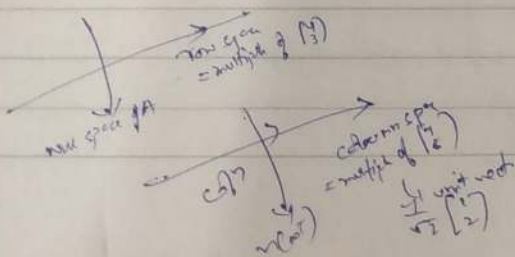 row space
= multiple of (4 3)
null space of A
column space
= multiple of (4 8)
C(A)
N(AT)
unit vect
1/√5 (1 2)